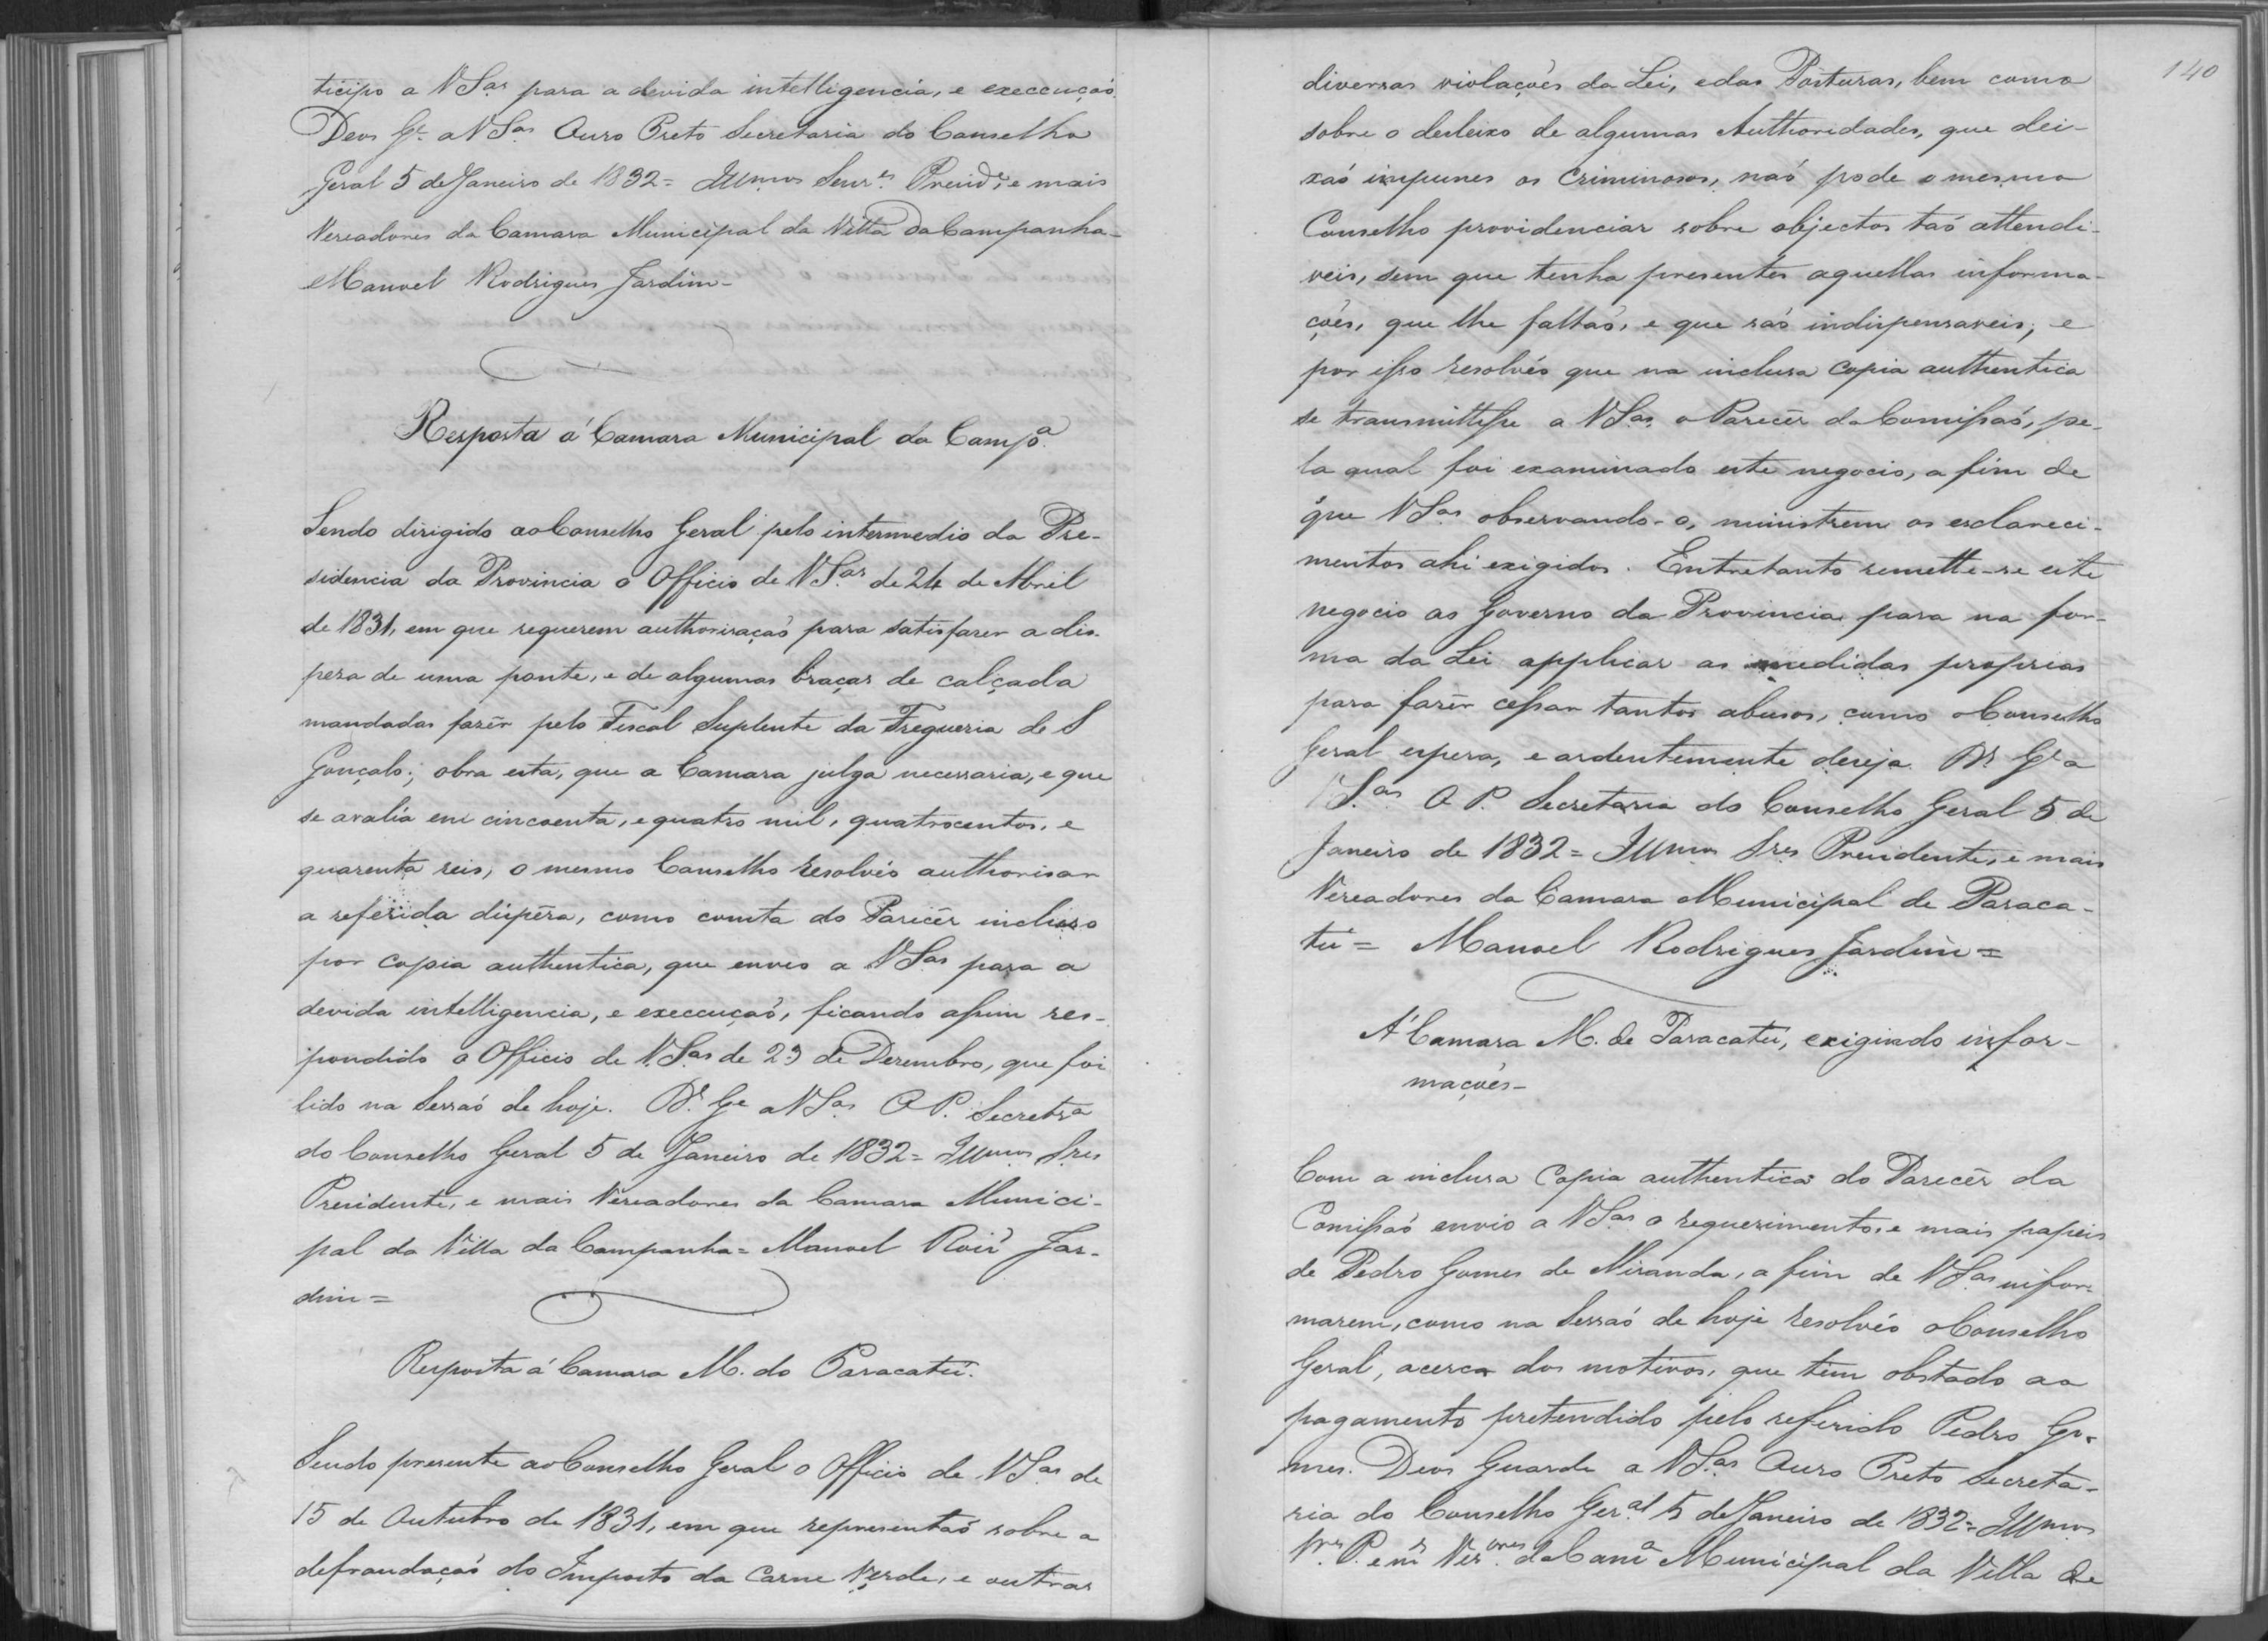 ticipo a VSas para a devida intelligencia, e execcuçaõ.
Deos Ge a VSas Ouro Preto Secretaria do Conselho
Geral 5 de Janeiro de 1832= Illmos Senres Presidte, e mais
Vereadores da Camara Municipal da Villa da Campanha-
Manoel Rodrigues Jardim-
Resposta á Camara Municipal da Campa.
Sendo dirigido ao Conselho Geral pelo intermedio da Pre-
sidencia da Provincia o Officio de VSas de 24 de Abril
de 1831, em que requerem authorisaçaõ para satisfazer a dis-
peza de uma ponte, e de algumas braças de calçada
mandadas fazêr pelo Fiscal Suplente da Freguezia de S
Gonçalo; obra esta, que a Camara julga necessaria, e que
se avalia em cincoenta, e quatro mil, quatrocentos, e
quarenta reis, o mesmo Conselho resolvêo authorisar
a referida dispêza, como consta do Parecêr incluso
por copia authentica, que envio a VSas para a
devida intelligencia, e execcuçaõ, ficando assim res-
pondido o Officio de V.Sas de 23 de Dezembro, que foi
lido na Sessaõ de hoje. Ds Ge a VSas O P. Secretra
do Conselho Geral 5 de Janeiro de 1832= Illmos Sres
Presidente, e mais Vereadores da Camara Munici-
pal da Villa da Campanha= Manoel Roiz Jar-
dim=
Resposta á Camara M. do Paracatú.
Sendo presente ao Conselho Geral o Officio de VSas de
15 de Outubro de 1831, em que representaõ sobre a
defraudaçaõ do Imposto da Carne Verde, e outras
140
diversas violaçoẽs da Lei, e das Posturas, bem como
sobre o desleixo de algumas Authoridades, que dei-
xaõ impunes os Criminosos, naõ pode o mesmo
Conselho providenciar sobre objectos taõ attendi-
veis, sem que tenha presentes aquellas informa-
çoẽs, que lhe faltaõ, e que saõ indispensaveis; e
por isso resolvêo que na inclusa copia authentica
se transmittisse a VSas o Parecêr da Comissaõ, pe-
la qual foi examinado este negocio, a fim de
que VSas observando-o, ministrem os esclareci-
mentos ahi exigidos. Entretanto remette-se este
negocio ao Governo da Provincia para na for-
ma da Lei applicar as medidas proprias
para fazêr cessar tantos abusos, como o Conselho
Geral espera, e ardentemente deseja. Ds Ge a
VSas O P. Secretaria do Conselho Geral 5 de
Janeiro de 1832= Illmos Sres Presidente, e mais
Vereadores da Camara Municipal de Paraca-
tú= Manoel Rodrigues Jardim=
A' Camara M. de Paracatú, exigindo infor-
maçoẽs-
Com a inclusa Copia authentica do Parecêr da
Comissaõ envio a VSas o requerimento, e mais papeis
de Pedro Gomes de Miranda, a fim de VSas infor-
marem, como na Sessaõ de hoje resolvêo o Conselho
Geral, acerca dos motivos, que tem obstado ao
pagamento pretendido pelo referido Pedro Go-
mes. Deos Guarde a VSas Ouro Preto Secreta-
ria do Conselho Geral 5 de Janeiro de 1832= Illmos
Sres P. e ms Verores da Camа Municipal da Villa de